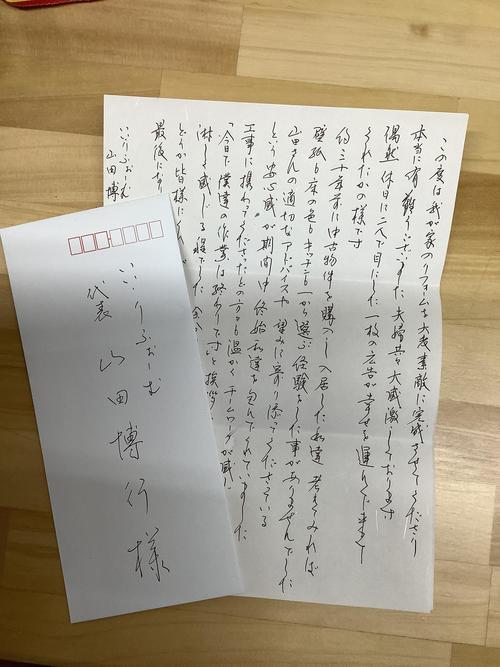 この度は我が家のリフォームを大変素敵に完成させてくださり
本当に有難うございました 夫婦共々大感激しております
偶然休日に二人で目にした一枚の広告が幸せを運んで来て
くれたかの様です
約三十年前に中古物件を購入し入居した私達 考えてみれば
壁紙も床の色もキッチンも一から選ぶ経験をした事がありませんでした
山田さんの適切なアドバイスや望みに寄り添ってくださっている
という安心感が期間中終始私達を包んでくれていました
工事に携わってくださったどの方も温かくチームワークが
「今日で僕達の作業は終わりです」と挨拶
淋しく感じる程でした
どうか皆様に
最後に
いいりふぉーむ
山田博
いいりふぉーむ
代表 山田博行様